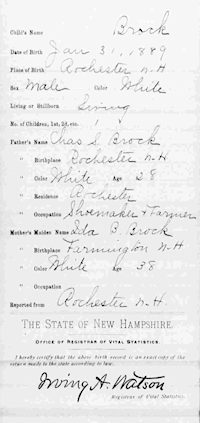 Child's Name Brock
Date of Birth Jan 31, 1889
Place of Birth Rochester N-H
Sex Male Color White
Living or Stillborn Living
No. of Children, 1st, 2d, etc. 1
Father's Name Chas S. Brock
" Birthplace Rochester N-H
" Color White Age 28
" Residence Rochester
" Occupation Shoemaker & Farmer
Mother's Maiden Name B Brock
" Birthplace Farmington N-H
" Color White Age 38
" Occupation
Reported from Rochester N-H
THE STATE OF NEW HAMPSHIRE.
OFFICE OF REGISTRAR OF VITAL STATISTICS.
I hereby certify that the above birth record is an exact copy of the
return made to the state according to law.
Irving A. Watson
Registrar of Vital Statistics.